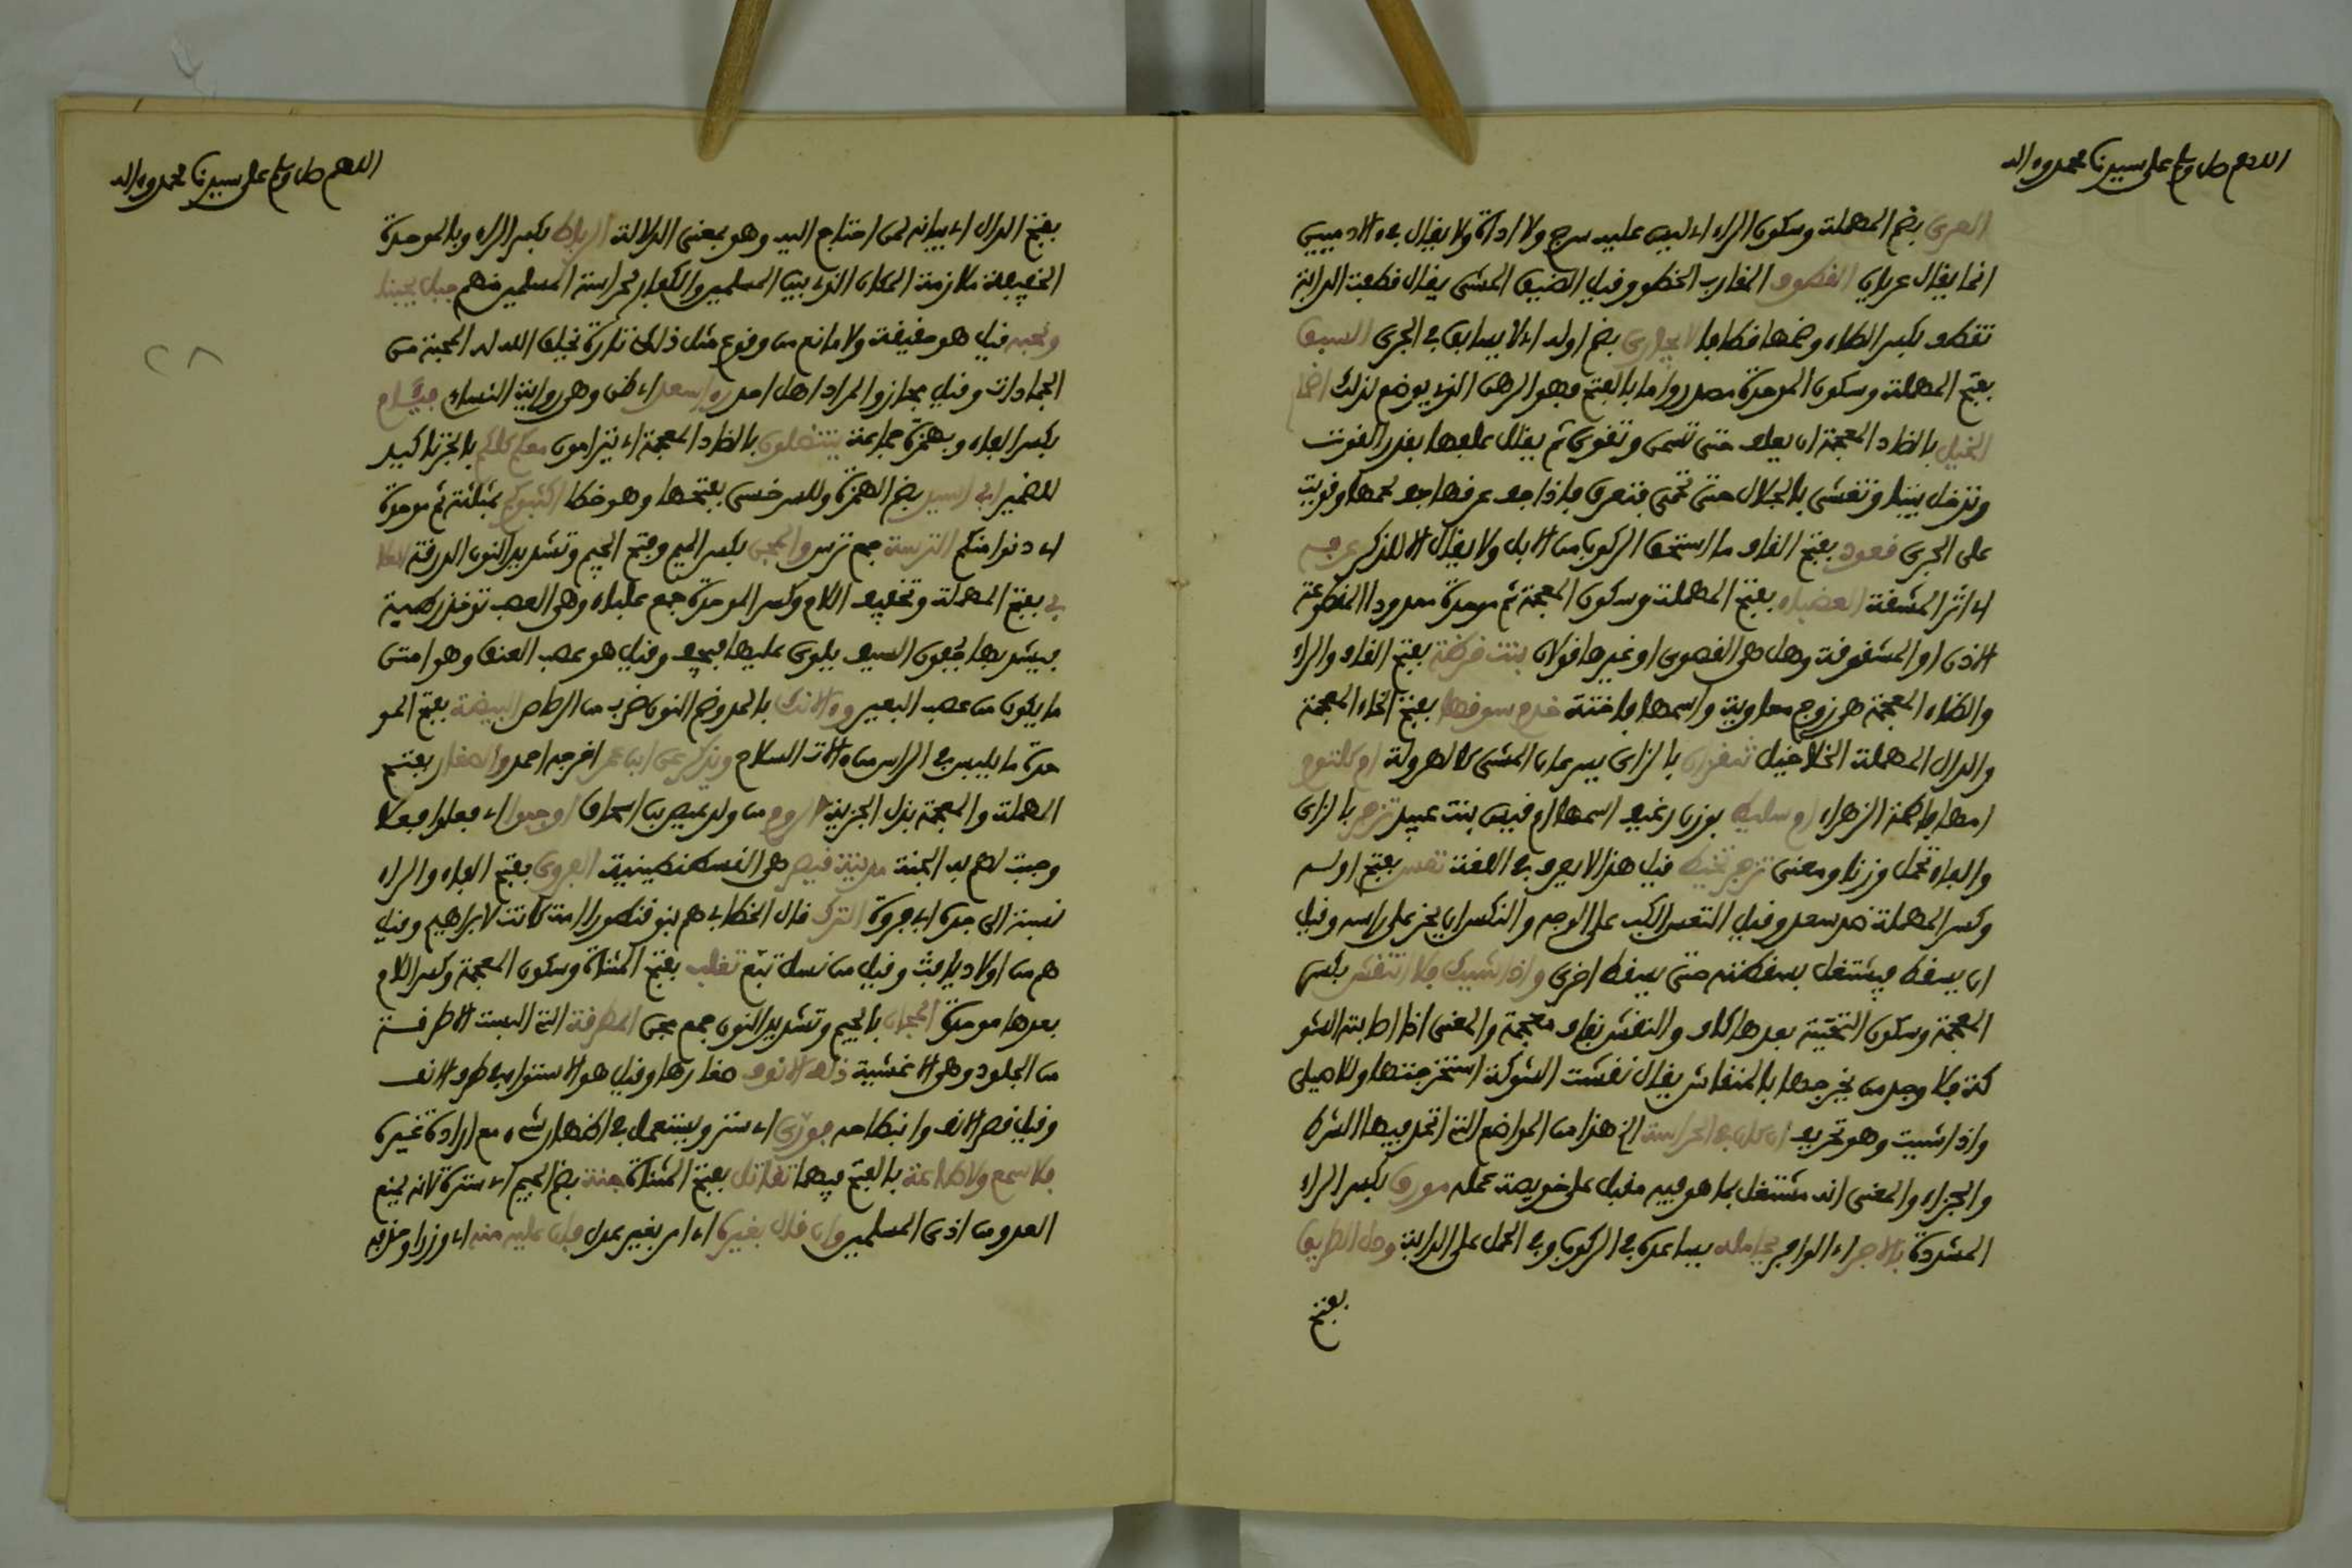 اللهم صل وسلم على سيدنا محمد وءاله
العري بضم المهملة وسكون الراء اي ليس عليه سرج ولا اداة ولا يقال في الادميين
انما يقال عريان القطوف المقارب الخطو وقيل الضيق المشي يقال قطفت الدابة
تقطف بكسر الطاء وضمها قطافا لا يجارى بضم اوله اي لا يسابق في الجري السبق
بفتح المهملة وسكون الموحدة مصدر واما بالفتح فهو الرهن الذي يوضع لذلك اضمار
الخيل بالضاد المعجمة ان يعلف حتى تسمن وتقوى ثم يقلل علفها بقدر القوت
وتدخل بيتا وتغشى بالجلال حتى تحمى فتعرق فاذا جف عرقها جف لحمها وقويت
على الجري قعود بفتح القاف ما استحق الركوب من الابل ولا يقال الا للذكر عرفه
اي اثر المشقة العضباء بفتح المهملة وسكون المعجمة ثم موحدة ممدود المقطوعة
الاذن او المشقوقة وهل هي القصوى او غيرها قولان بنت قرظة بفتح القاف والراء
والظاء المعجمة هي زوج معاوية واسمها فاختة خدم سوقها بفتح الخاء المعجمة
والدال المهملة الخلاخيل تنقزان بالزاي يسرعان المشي كالهرولة ام كلثوم
امها فاطمة الزهراء ام سليط بوزن رغيف اسمها ام قيس بنت عبيد تزفر بالزاي
والفاء تحمل وزنا ومعنى تزفر تخيط قيل هذا لا يعرف في اللغة تعس بفتح اوله
وكسر المهملة ضد سعد وقيل التعس الكب على الوجه والنكس ان يخر على راسه وقيل
ان يسقط فيشتغل بسقطته حتى يسقط اخرى واذا شيك فلا انتقش بكسر
المعجمة وسكون التحتية بعدها كاف والنقش بقاف معجمة والمعنى اذا اصابته الشو
كة فلا وجد من يخرجها بالمنقاش يقال نقشت الشوكة استخرجتها وللاصيلي
واذا شيت وهو تحريف ان كان في الحراسة الخ هذا من المواضع التي اتحد فيها الشرط
والجزاء والمعنى انه مشتغل بما هو فيه مقبل على خويصة عمله مورق بكسر الراء
المشددة بالاجر اي الوافر يحامله يساعده في الركوب وفي الحمل على الدابة ودل الطريق
بفتح
اللهم صل وسلم على سيدنا محمد وءاله
بفتح الدال اي بيانه لمن احتاج اليه وهو بمعنى الدلالة الرباط بكسر الراء وبالموحدة
الخفيفة ملازمة المكان الذي بين المسلمين والكفار لحراسة المسلمين منهم جبل يحبنا
ونحبه قيل هو حقيقة ولا مانع من وقوع مثل ذلك تارة بخلق الله له المحبة من
الجمادات وقيل مجاز والمراد اهل احد راء سعد اي ظن وهي رواية النساء فئام
بكسر الفاء وبهمزة جماعة ينتضلون بالضاد المعجمة اي يترامون معكم كلكم بالجر تاكيد
للضمير ابي اسيد بضم الهمزة وللسرخسي بفتحها وهو خطا اكثبوكم بمثلثة ثم موحدة
اي دنوا منكم الترسة جمع ترس والمجن بكسر الميم وفتح الجيم وتشديد النون الدرقة العلا
بي بفتح المهملة وتخفيف اللام وكسر الموحدة جمع علباء وهي العصب توخذ رطبة
فيشد بها جفون السيف يلوى عليها فيجف وقيل هو عصب العنق وهو امتن
ما يكون من عصب البعير وءالانك بالمد وضم النون ضرب من الرصاص البيضة بفتح المو
حدة ما يلبس في الراس من ءالات السلاح ويذكر عن ابن عمر اخرجه احمد والصغار بفتح
المهملة والمعجمة بذل الجزية الروم من ولد عيص بن اسحاق اوجبوا اي فعلوا فعلا
وجبت لهم به الجنة مدينة قيصر هي القسطنطينية الفروي بفتح الفاء والراء
نسبة الى جده ابي فروة الترك قال الخطابي هم بنو قنطورا امة كانت لابراهيم وقيل
هم من اولاد يافث وقيل من نسل تبع تغلب بفتح المثناة وسكون المعجمة وكسر اللام
بعدها موحدة المجان بالجيم وتشديد النون جمع مجن المطرقة التي البست الاطرقة
من الجلود وهي الاغشية ذلف الانوف صغارها وقيل هو الاستواء في طرف الانف
وقيل قصر الانف وانبطاحه فورى اي ستر ويستعمل في اظهار شيء مع ارادة غيره
فلا سمع ولا طاعة بالفتح فيهما تقاتل بفتح المثناة جنة بضم الجيم اي سترة لانه يمنع
العدو من اذى المسلمين وان قال بغيره اي امر بغير عدل فان عليه منه اي وزرا وحذفه